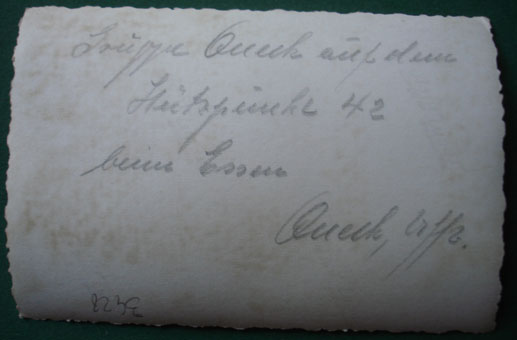 Gruppe Queck auf dem
Stützpunkt 42
beim Essen
Queck, Uffz.
3228